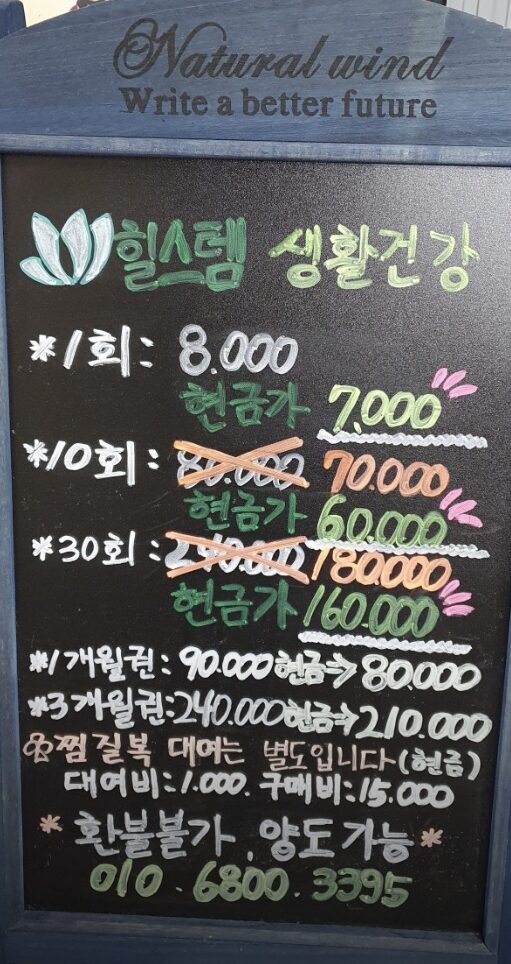 Natural wind
Write a better future
힐스템 생활건강
*1회: 8.000
현금가 7.000
*10회: 80.000 70.000
현금가 60.000
*30회: 240.000 180.000
현금가 160.000
*1개월권: 90.000 현금→ 80.000
*3개월권: 240.000 현금→ 210.000
찜질복 대여는 별도입니다 (현금)
대여비: 1.000. 구매비: 15.000
* 환불불가, 양도가능 *
010. 6800. 3395